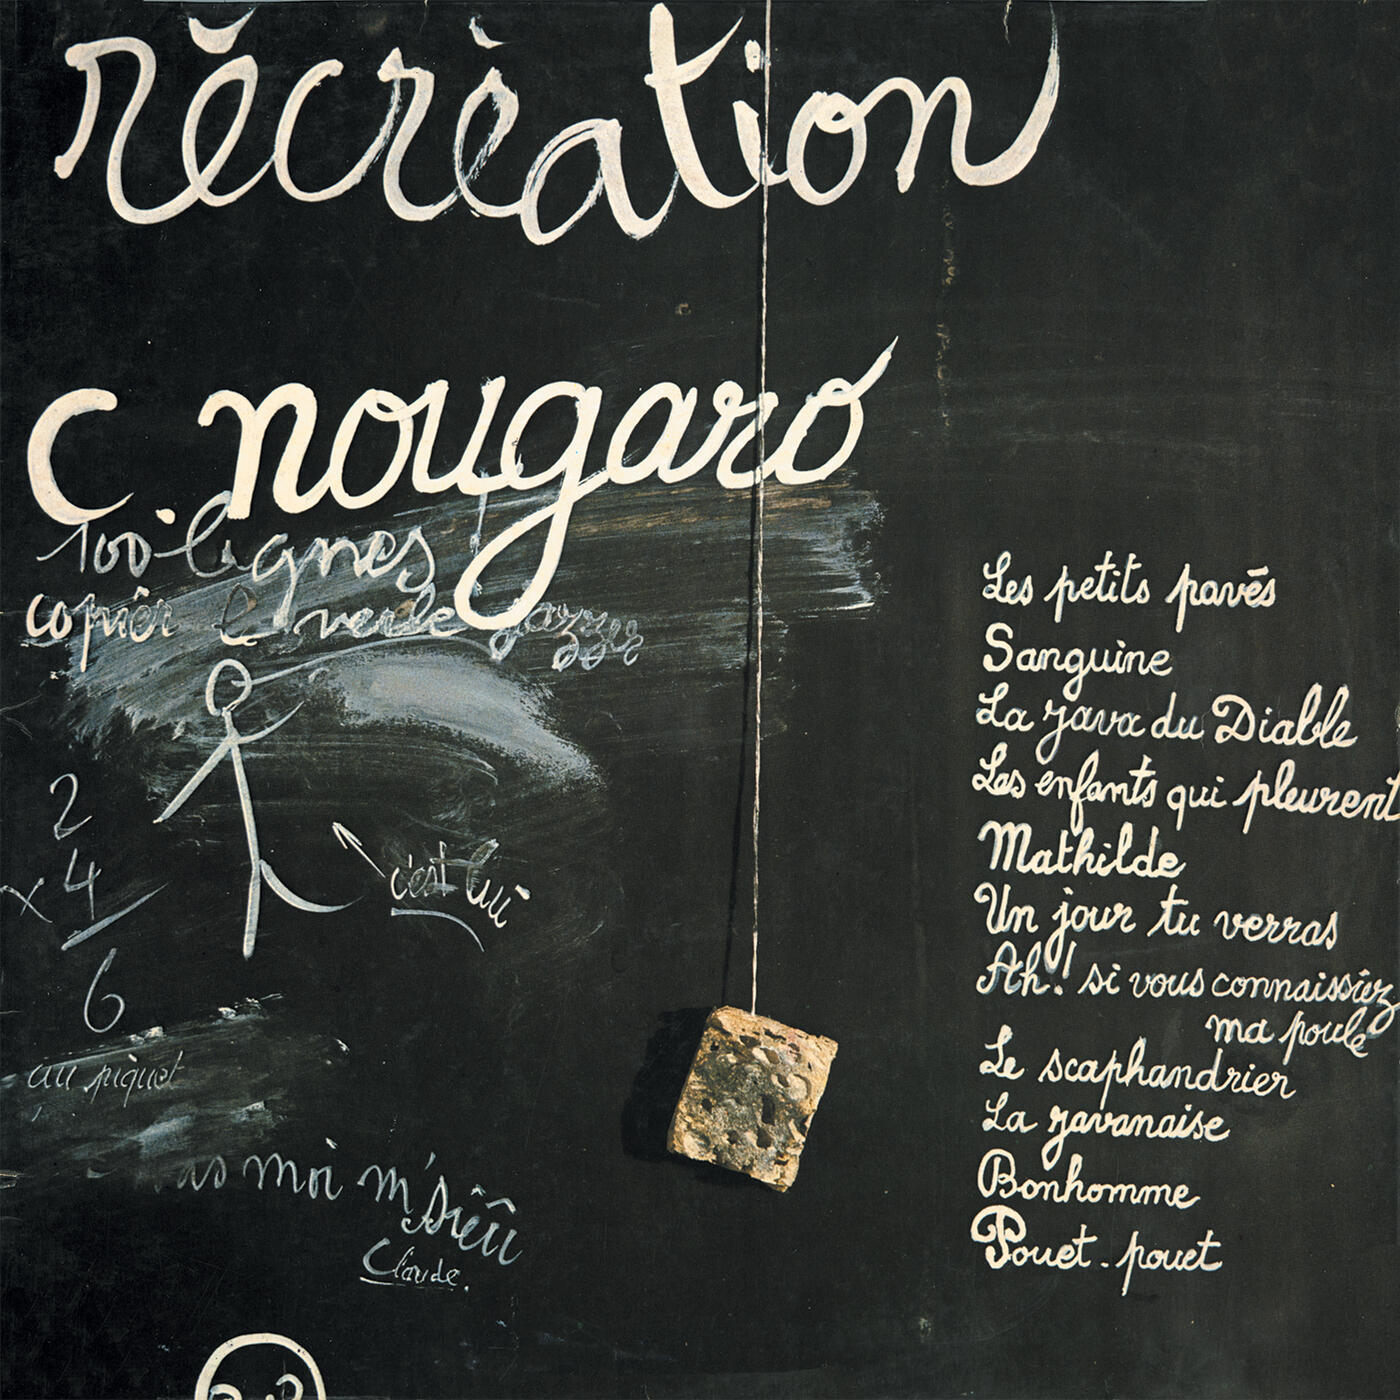 récréation
c. nougaro
100 lignes
copier le verbe jazzer
c'est lui
2
x 4
6
au piquet
pas moi m'sieu
Claude.
Les petits pavés
Sanguine
La java du Diable
Les enfants qui pleurent
Mathilde
Un jour tu verras
Ah! si vous connaissiez
ma poule
Le scaphandrier
La javanaise
Bonhomme
Pouet. pouet